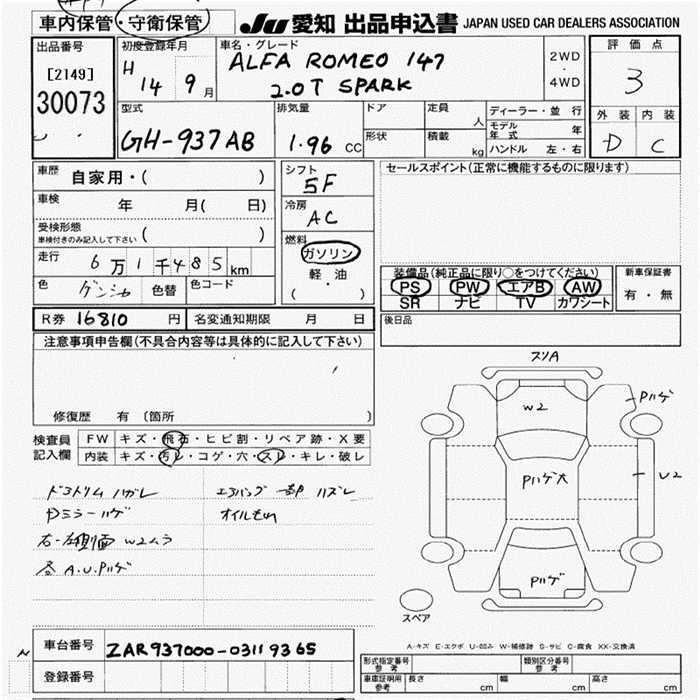 車内保管・守衛保管
JU 愛知 出品申込書 JAPAN USED CAR DEALERS ASSOCIATION
出品番号
[2149]
30073
初度登録年月
H 14 9 月
車名・グレード
ALFA ROMEO 147
2.0T SPARK
2WD
・
4WD
評価点
3
外装 内装
D C
型式
GH-937AB
排気量
1.96 CC
ドア
形状
定員 人
積載 kg
ディーラー・並行
モデル年式 年
ハンドル 左・右
車歴 自家用・( )
車検 年 月( 日)
受検形態
車検付きのみ記入して下さい ( )
走行 6万1千485km
色 ゲンシャ 色替 色コード
シフト
5F
冷房
AC
燃料
ガソリン
軽・油
( )
セールスポイント(正常に機能するものに限ります)
装備品(純正品に限り○をつけてください)
PS PW エアB AW
SR ナビ TV カワシート
新車保証書
有・無
R券 16810 円 名変通知期限 月 日
後日品
注意事項申告欄(不具合内容等は具体的に記入して下さい)
修復歴 有〔箇所 〕
検査員
記入欄
FW キズ・飛石・ヒビ割・リペア跡・X要
内装 キズ・汚レ・コゲ・穴・スレ・キレ・破レ
ドアトリム ハガレ
Dミラーハゲ
右・左側面 W2ムラ
各A.U.Pハゲ
エアバッグ一部ハズレ
オイルもれ
スリA
W2
Pハゲ
Pハゲ大
U2
Pハゲ
スペア
A-キズ E-エクボ U-凹み W-補修跡 S-サビ C-腐食 XX-交換済
車台番号 ZAR937000-03119365
登録番号
形式指定番号
参考
類別区分番号
参考
車庫証明用
参考
長さ cm 幅 cm 高さ cm